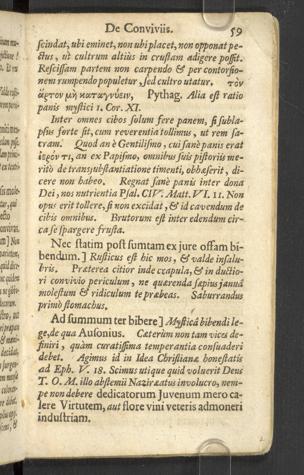 De Conviviis. 59
scindat, ubi eminet, non ubi placet, non opponat pe-
ctus, ut cultrum altiùs in crustam adigere possit.
Rescissam partem non carpendo & per contorsio-
nem rumpendo populetur, sed cultro utatur. τὸν
ἄρτον μὴ καταγνύειν, Pythag. Alia est ratio
panis mystici 1. Cor. XI.
Inter omnes cibos solum fere panem, si subla-
psus forte sit, cum reverentia tollimus, ut rem sa-
cram. Quod an è Gentilismo, cui sanè panis erat
ἱερόν τι, an ex Papismo, omnibus suis pistoriis me-
ritò de transsubstantiatione timenti, obhæserit, di-
cere non habeo. Regnat sanè panis inter dona
Dei, nos nutrientia Psal. CIV. Matt. VI. 11. Non
opus erit tollere, si non excidat, & id cavendum de
cibis omnibus. Brutorum est inter edendum cir-
ca se spargere frusta.
Nec statim post sumtam ex jure offam bi-
bendum. ] Rusticus est hic mos, & valde insalu-
bris. Præterea citior inde crapula, & in ductio-
ri convivio periculum, ne quærenda sæpius janua
molestum & ridiculum te præbeas. Saburrandus
primò stomachus.
Ad summum ter bibere ] Mysticâ bibendi le-
ge, de qua Ausonius. Ceterùm non tam vices de-
finiri, quàm curatissima temperantia consuaderi
debet. Agimus id in Idea Christianæ honestatis
ad Eph. V. 18. Scimus utique quid voluerit Deus
T. O. M. illo abstemii Naziræatus involucro, nem-
pe non debere dedicatorum Juvenum mero ca-
lere Virtutem, aut flore vini veteris admoneri
industriam.